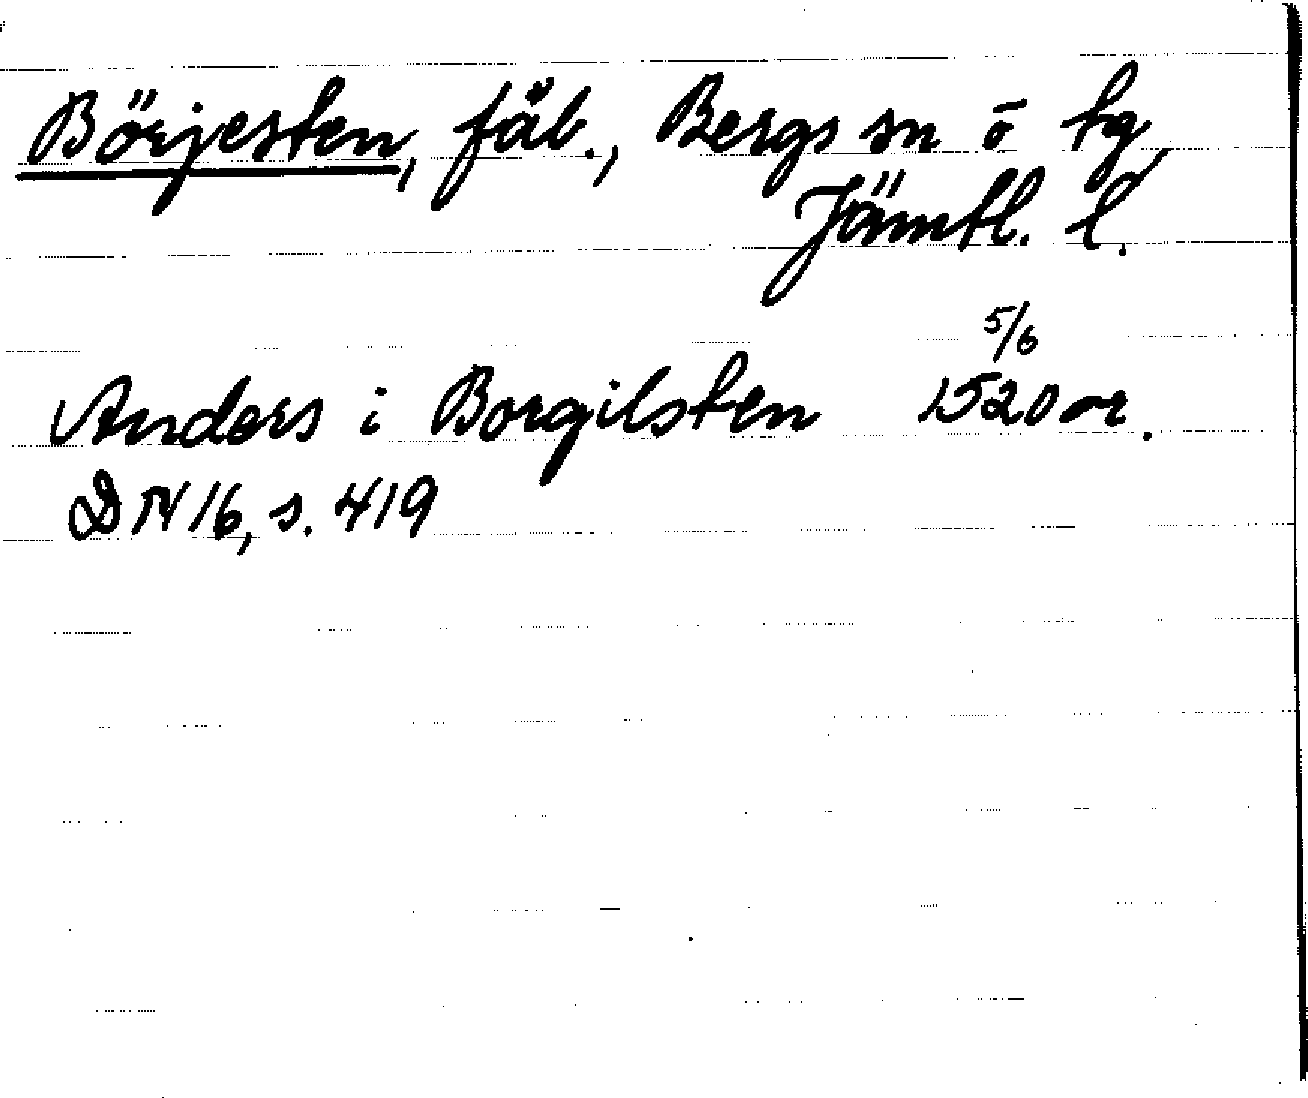 Börjesten, fäb., Bergs sn o tg,
Jämtl. l.
Anders i Borgilsten 5/6 1520 or.
DN 16, s. 419